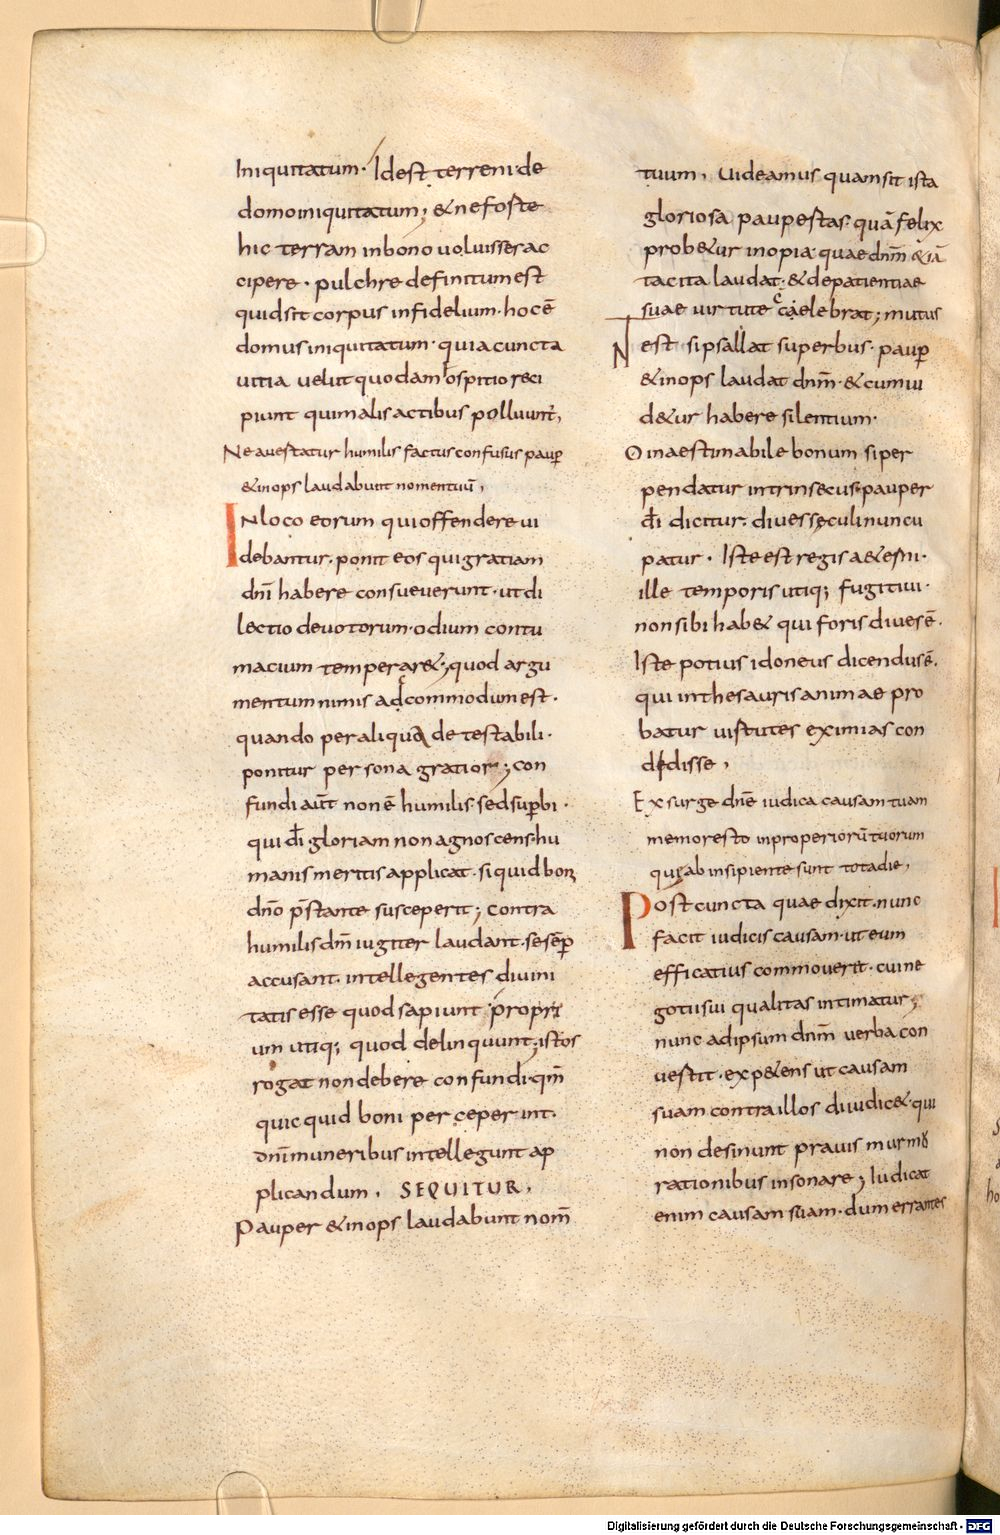 Iniquitatum· Idest terreni de
domo iniquitatum; & nefoste
hic terram inbono uoluisse ac
cipere· pulchre definitum est
quid sit corpus infidelium· hoc ē
domus iniquitatum· quia cuncta
uitia uelut quodam hospitio reci
piunt qui malis actibus polluunt̄,
Ne auertatur humilis factus confusus paup̄
& inops laudabunt nomen tuū,
In loco eorum qui offendere ui
debantur· ponit eos qui gratiam
dnī habere consueuerunt· ut di
lectio deuotorum· odium contu
macium temperar&; quod argu
mentum nimis adcommodum est·
quando per aliqua detestabili·
ponitur persona gratior; con
fundi aūt non ē humilis· sed sup̄bi·
qui dī· gloriam non agnoscens· hu
manis meritis applicat· si quid bon
dn̄o p̄stante susceperit; contra
humilis dnm̄ iugiter laudant· se sēp
accusant· intellegentes diuini
tatis esse quod sapiunt propri
um utiq; quod delinquunt; istos
rogat non debere confundi· qm̄
quicquid boni perceperint·
dnī muneribus intellegunt ap
plicandum, SEQUITUR,
Pauper & inops laudabunt nom̄
tuum, Uideamus quam sit ista
gloriosa paupertas· quā felix
prob&ur inopia· quae dnm̄ & iā
tacita laudat· & de patientiae
suae uirtute caelebrat; mutus
est si psallat superbus· paup̄
& inops laudat dnm̄· & cum ui
d&ur habere silentium·
O inaestimabile bonum si per
pendatur intrinsecus· pauper
dī dicitur· diues seculi nuncu
patur· Iste est regis a&erni·
ille temporis utiq; fugitiui·
non sibi hab& qui foris diues ē·
Iste potius idoneus dicendus ē·
qui in thesauris animae pro
batur uirtutes eximias con
dedisse,
Exsurge dn̄e iudica causam tuam
memor esto inproperiorū tuorum
qui ab insipiente sunt tota die,
Post cuncta quae dixit· nunc
facit iudicis causam· ut eum
efficatius commouerit· cui ne
gotii sui qualitas intimatur;
nunc ad ipsum dnm̄ uerba con
uestit· exp&ens ut causam
suam contra illos diiudic&· qui
non desinunt prauis murmu
rationibus insonare; Iudicat
enim causam suam· dum errantes
Digitalisierung gefördert durch die Deutsche Forschungsgemeinschaft · DFG